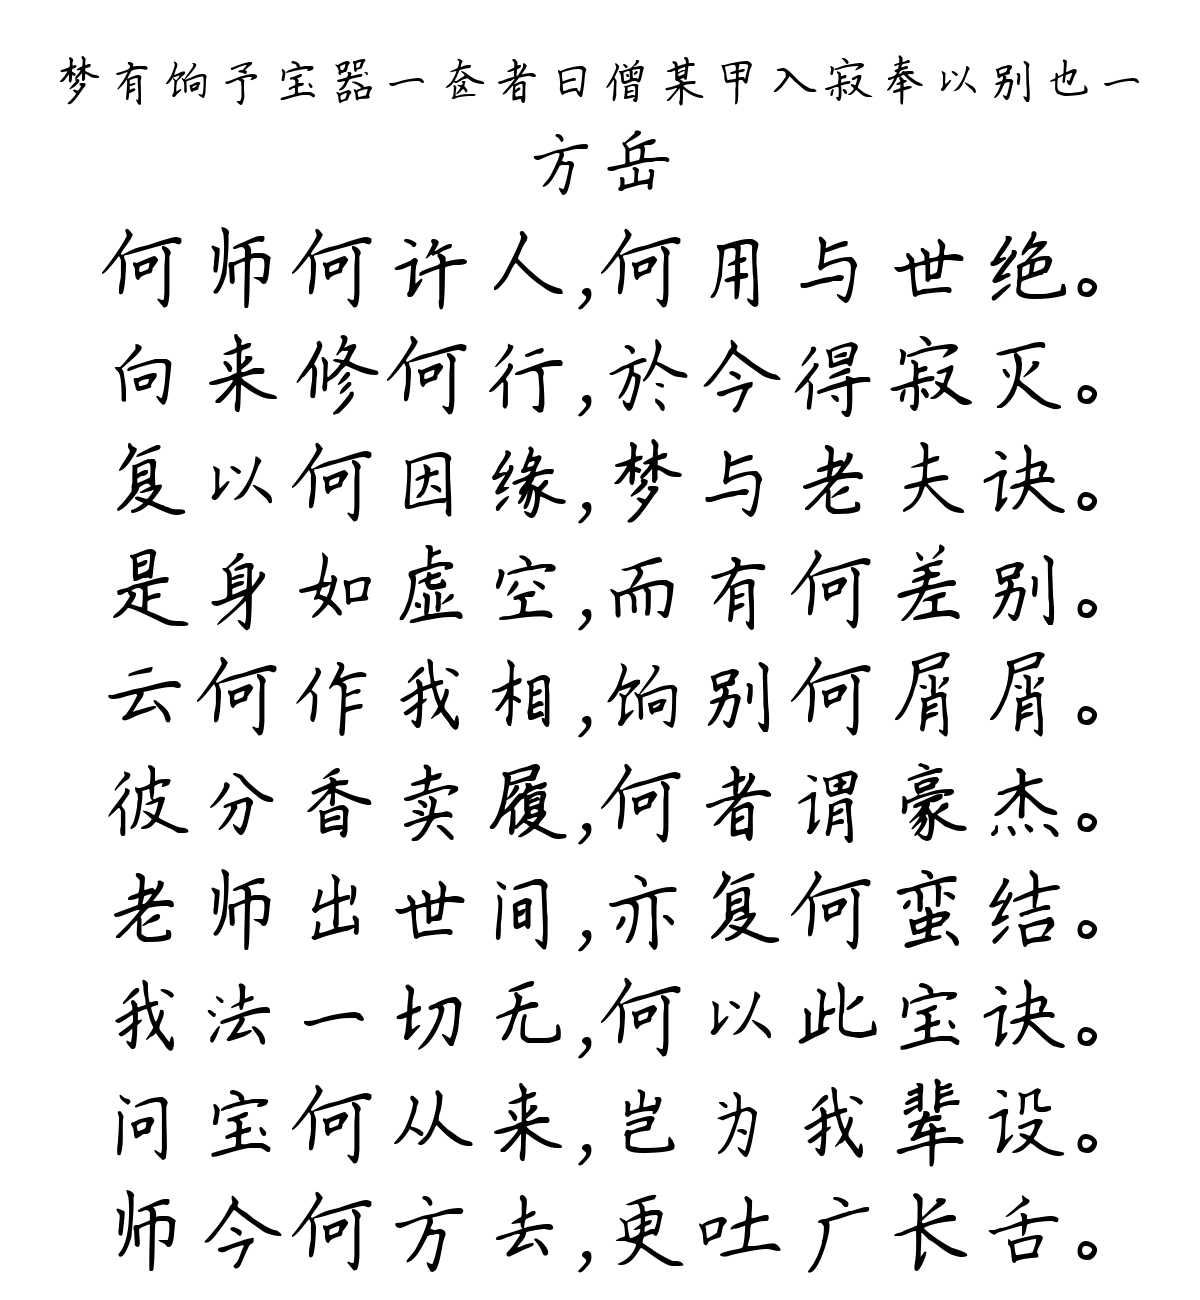 梦有饷予宝器一奁者曰僧某甲入寂奉以别也一
方岳
何师何许人,何用与世绝。
向来修何行,於今得寂灭。
复以何因缘,梦与老夫诀。
是身如虚空,而有何差别。
云何作我相,饷别何屑屑。
彼分香卖履,何者谓豪杰。
老师出世间,亦复何蛮结。
我法一切无,何以此宝诀。
问宝何从来,岂为我辈设。
师今何方去,更吐广长舌。